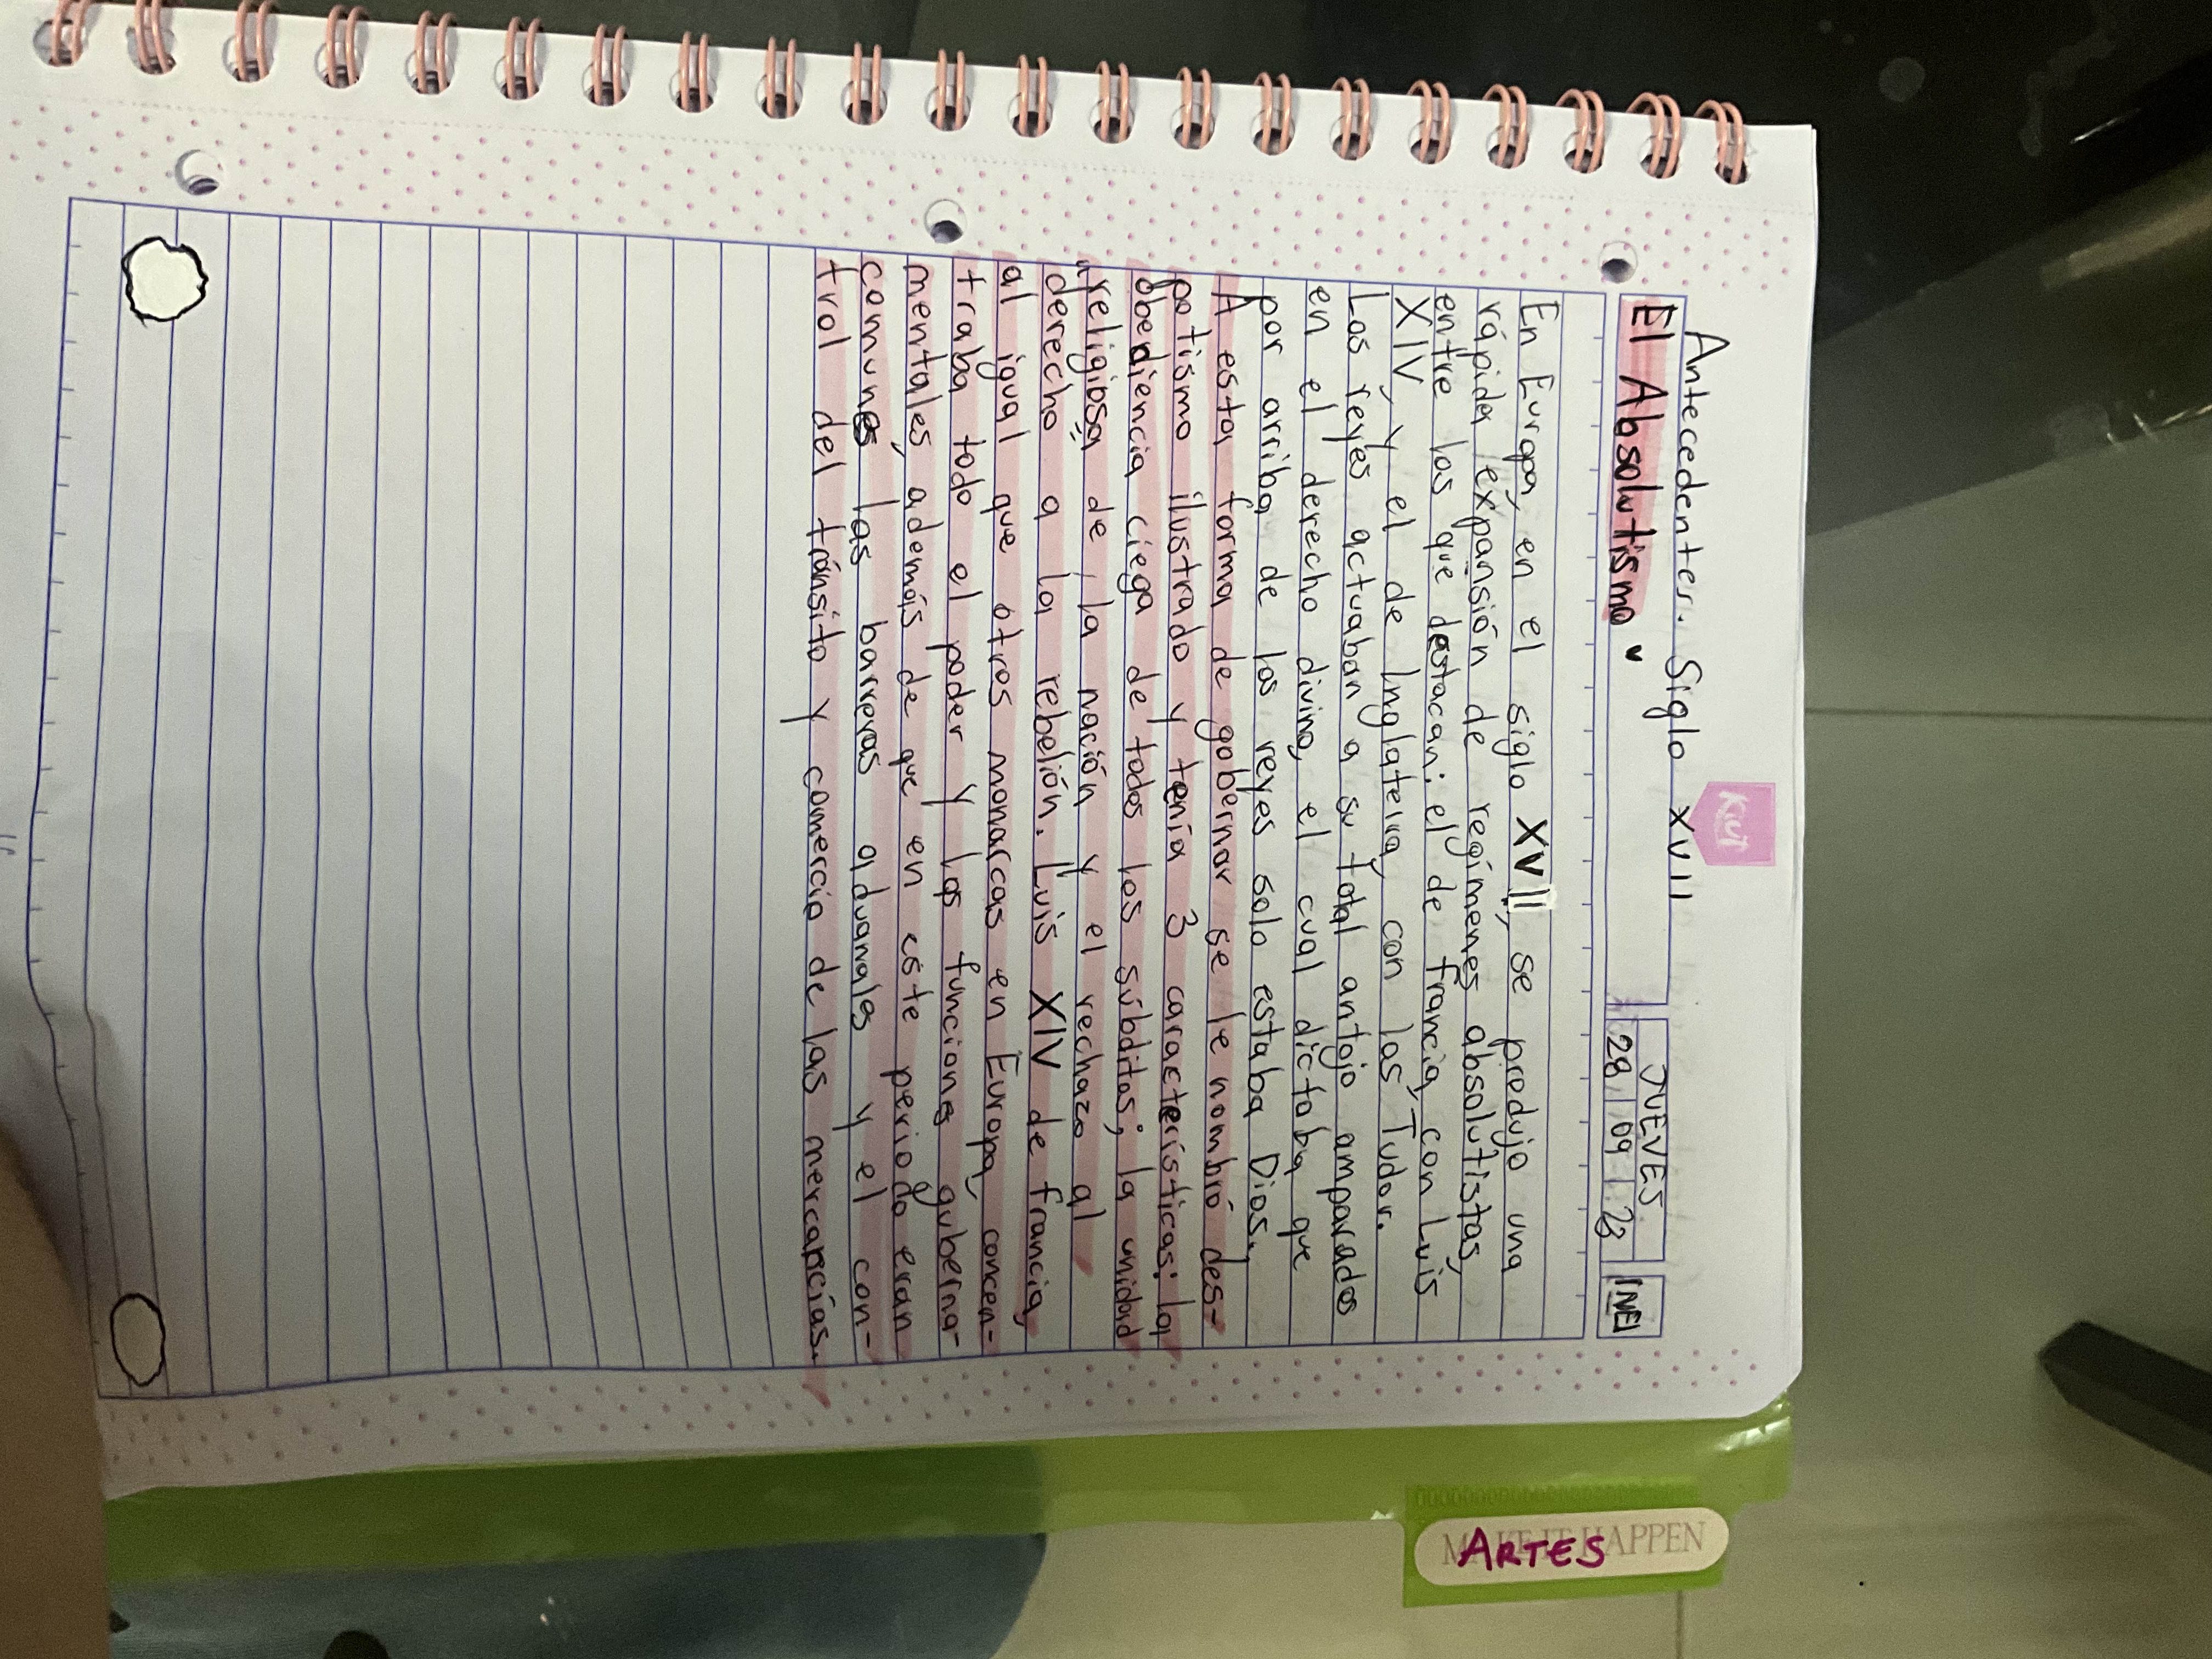 Antecedentes. Siglo XVII
Kiut
El Absolutismo.
JUEVES
28 09 23
En Europa, en el siglo XVII, se produjo una
rápida expansión de regímenes absolutistas,
entre los que destacan: el de francia, con Luis
XIV, y el de Inglaterra, con los Tudor.
Los reyes actuaban a su total antojo amparados
en el derecho divino, el cual dictaba que
por arriba de los reyes solo estaba Dios.
A esta forma de gobernar se le nombró des-
potismo ilustrado y tenía 3 características: la
obediencia ciega de todos los súbditos; la unidad
religiosa de la nación y el rechazo al
derecho a la rebelión. Luis XIV de francia,
al igual que otros monarcas en Europa, concen-
traba todo el poder y las funciones guberna-
mentales, además de que en este periodo eran
comunes las barreras aduanales y el con-
trol del tránsito y comercio de las mercancías.
MAKE IT HAPPEN
ARTES